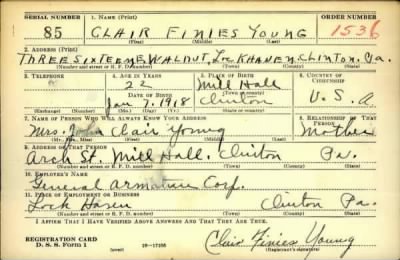 SERIAL NUMBER 1. NAME (Print) ORDER NUMBER
85 CLAIR FINIES YOUNG 1536
(First) (Middle) (Last)
2. ADDRESS (Print)
THREE SIXTEEN E. WALNUT, LOCKHAVEN, CLINTON, Pa.
(Number and street or R. F. D. number) (Town) (County) (State)
3. TELEPHONE 4. AGE IN YEARS 5. PLACE OF BIRTH 6. COUNTRY OF CITIZENSHIP
22 Mill Hall
DATE OF BIRTH (Town or county)
Jan 7, 1918 Clinton U. S. A
(Mo.) (Day) (Yr.) (State or country)
7. NAME OF PERSON WHO WILL ALWAYS KNOW YOUR ADDRESS 8. RELATIONSHIP OF THAT PERSON
Mrs. John Clair Young Mother
(Mr., Mrs., Miss) (First) (Middle) (Last)
9. ADDRESS OF THAT PERSON
Arch St. Mill Hall, Clinton Pa.
(Number and street or R. F. D. number) (Town) (County) (State)
10. EMPLOYER'S NAME
General Armature Corp.
11. PLACE OF EMPLOYMENT OR BUSINESS
Lock Haven Clinton Pa.
(Number and street or R. F. D. number) (Town) (County) (State)
I AFFIRM THAT I HAVE VERIFIED ABOVE ANSWERS AND THAT THEY ARE TRUE.
REGISTRATION CARD
D. S. S. Form 1 (over) 16-17105 Clair Finies Young
(Registrant's signature)